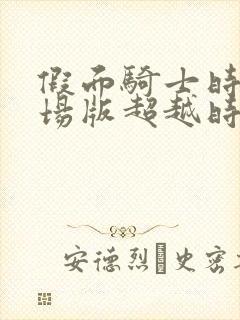 假面騎士時
場版超越時
安德烈·史密